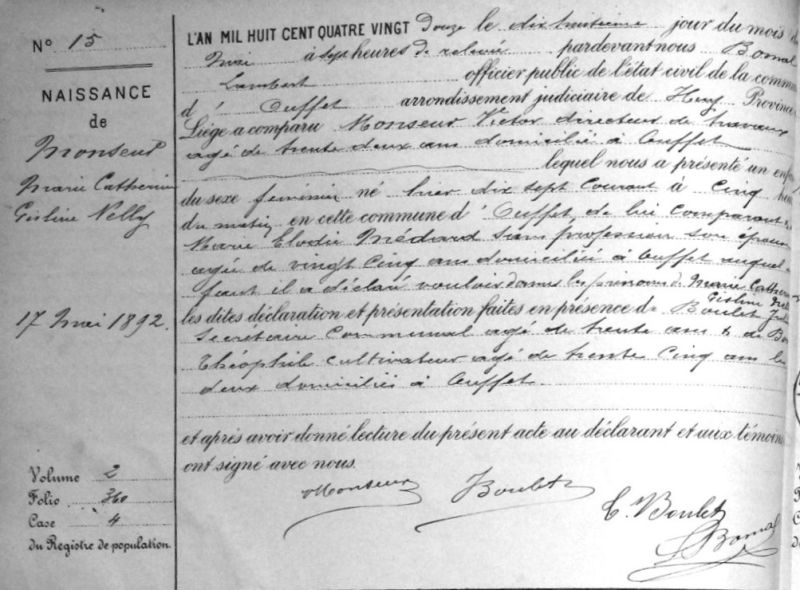 N° 15
NAISSANCE
de
Monseur
Marie Catherine
Gisline Nelly
17 Mai 1892.
Volume 2
Folio 360
Case 4
du Registre de population.
L'AN MIL HUIT CENT QUATRE VINGT Douze le dix huitième jour du mois d
Mai à sept heures de relevée pardevant nous Bomal
Lambert officier public de l'état civil de la commu
d' Ouffet arrondissement judiciaire de Huy Province
Liége a comparu Monseur Victor directeur de travaux
agé de trente deux ans domicilié à Ouffet
lequel nous a présenté un enf
du sexe féminin né hier dix sept Courant à Cinq heu
du matin en cette commune d' Ouffet, de lui Comparant &
Marie Elodie Médard sans profession son épouse
agée de vingt Cinq ans domiciliée à Ouffet auquel
faut il a déclaré vouloir donner les prénoms de Marie Catherin
Gisline Nel
les dites déclaration et présentation faites en présence de Boulet Jule
Secrétaire Communal agé de trente ans & de Bo
Théophile cultivateur agé de trente Cinq ans les
deux domiciliés à Ouffet.
et après avoir donné lecture du présent acte au déclarant et aux témoin
ont signé avec nous.
Monseur
Boulet
C. Boulet
L Bomal